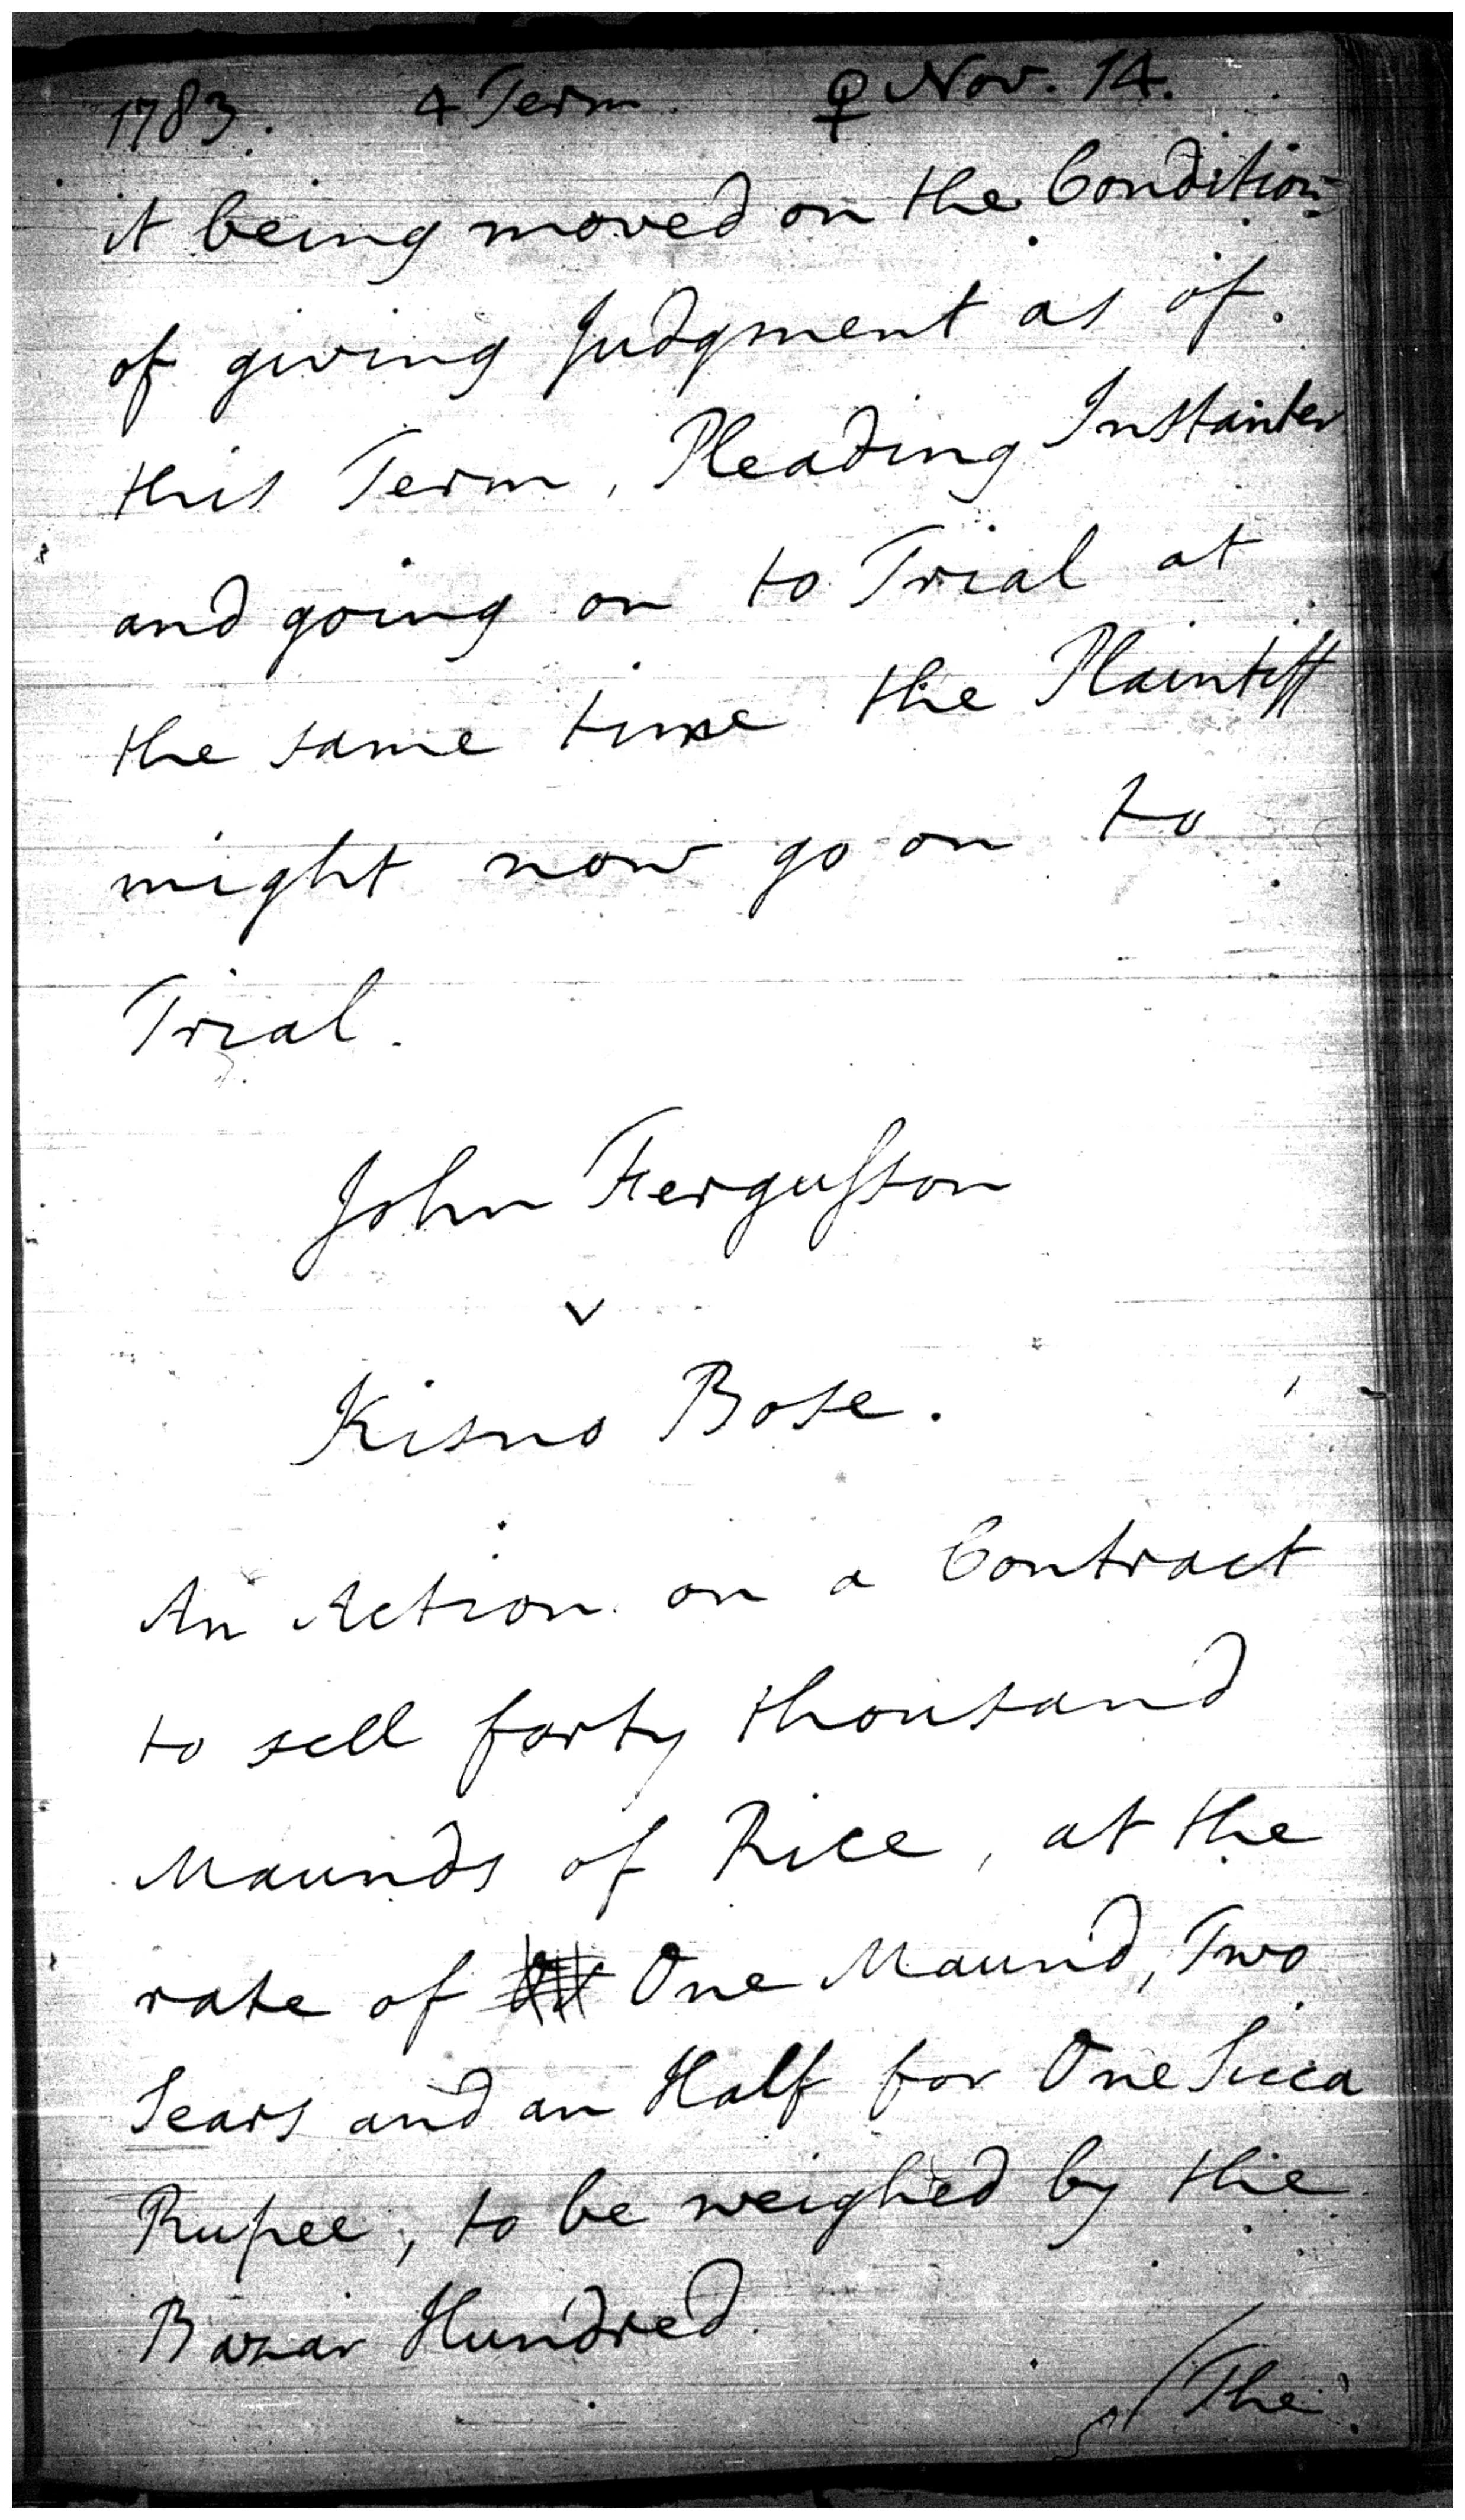 1783. 4 Term. ♀ Nov. 14.
it being moved on the Condition
of giving Judgment as of
this Term, Pleading Instanter
and going on to Trial at
the same time the Plaintiff
might now go on to
Trial.
John Ferguſson
v
Kisno Bose.
An Action on a Contract
to sell forty thousand
Maunds of Rice, at the
rate of One Maund, Two
Sears and an Half for One Sicca
Rupee, to be weighed by the
Bazar Hundred.
/The